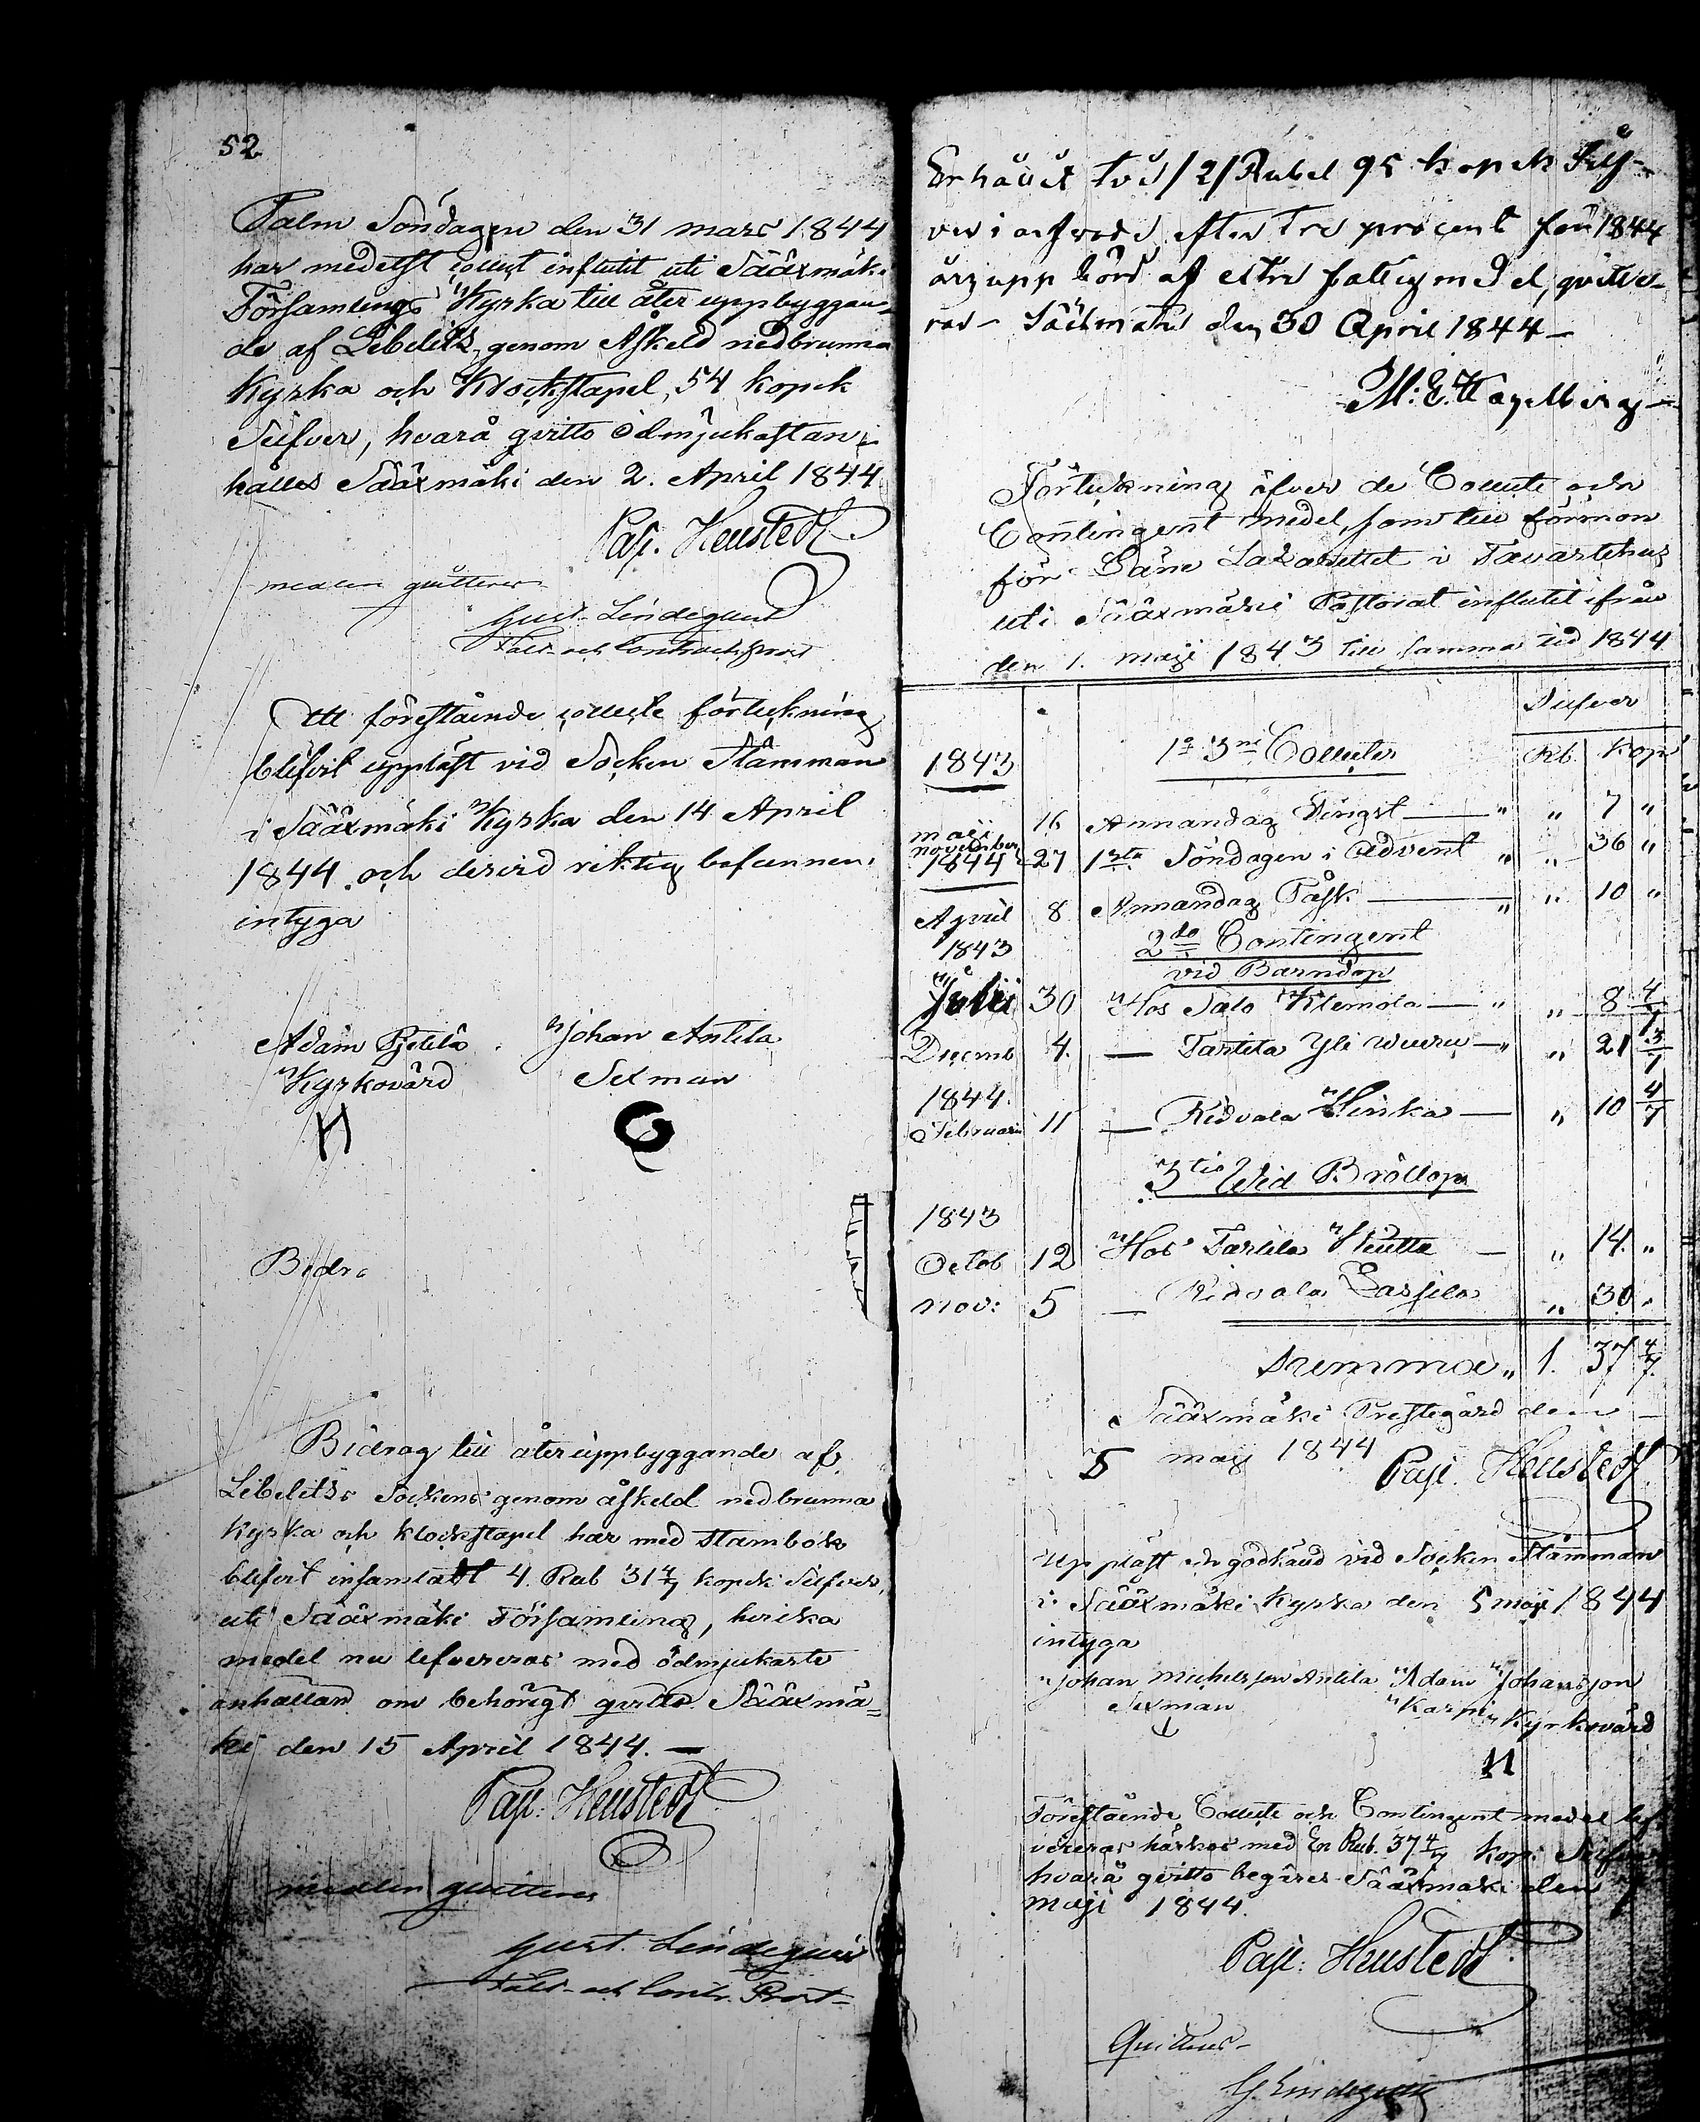 52
Palm Söndagen den 31 mars 1844
har medelst collect influtit uti Sääxmäki
Församlings Kyrka till åter uppbyggan-
de af Libelits, genom Åskeld nedbrunna
Kyrka och Klockstapel, 54 kopek
Silfver, hvarå qvitto ödmjukast an-
hålles Sääxmäki den 2. April 1844
Past. Hellstedt
medlen quitteras
Gust. Lindegvist
och Contracts Prost
Att förestående collecte förteckning
blifvit uppläst vid Socken Stämman
i Sääxmäki Kyrka den 14 April
1844. och dervid riktig befunnen,
intyga
Adam Pietilä Johan Antila
Kyrkovärd Sexman
Bidra
Bidrag till återuppbyggande af
Libelitss Sockens genom åskeld nedbrunna
Kyrka och klockstapel har med Stambok
blifvit insamladt 4. Rub 31 4/7 kopek Silfver,
uti Sääxmäki Församling, hvilka
medel nu lefvereras med ödmjukaste
anhållan om behörigt qvitto. Sääxmä=
ki den 15 April 1844. —
Past: Hellstedt
medlen quitteras
Gust. Lindegvist
och Contr. Prost
Erhållit två /2/ Rubel 95 kopek Silf-
ver i arfvode, efter tre procent för 1844
års uppbörd af extra fattigmedel, qvitte-
ras - Sääxmäki den 30 April 1844 —
M. E.
Förteckning öfver de Collecte och
Contingent medel, som till förmon
för Läne Lazarettet i Tavastehus
uti Sääxmäki Pastorat influtit ifrån
den 1. maji 1843 till samma tid 1844
Silfver
1843 1º 3ne Collecter Rb. Kop
maji 16 Annandag Pingst — " " 7 "
november 27 1sta Söndagen i Advent " " 36 "
1844
April 8 Annandag Påsk — " " 10 "
1843 2do Contingent
vid Barndop
Julii 30 Hos Salo Klemola — " " 8 4/7
Decemb 4. — Tarttila Yli — " " 21 3/7
1844.
Februari 11 — Ridvala — " 10 4/7
3tio Wid Bröllop
1843
Octob 12 Hos Tarttila — " 14. "
nov: 5 — Ridvala Lassila " 30. "
Summa " 1. 37 4/7.
Sääxmäki Prestegård den —
5 maji 1844 Past. Hellstedt
Uppläst och godkänd vid Socken Stämman
i Sääxmäki Kyrka den 5 maji 1844
intyga
Johan Michelsson Antila Adam Johansson
Sexman Karpi Kyrkovärd
Förestående Collecte och Contingent medel lef-
vereras härhos med En Rub. 37 4/7 kop: Silfver
hvarå qvitto begäres Sääxmäki den 7
maji 1844.
Past: Hellstedt
Quitteras
G. Lindegvist